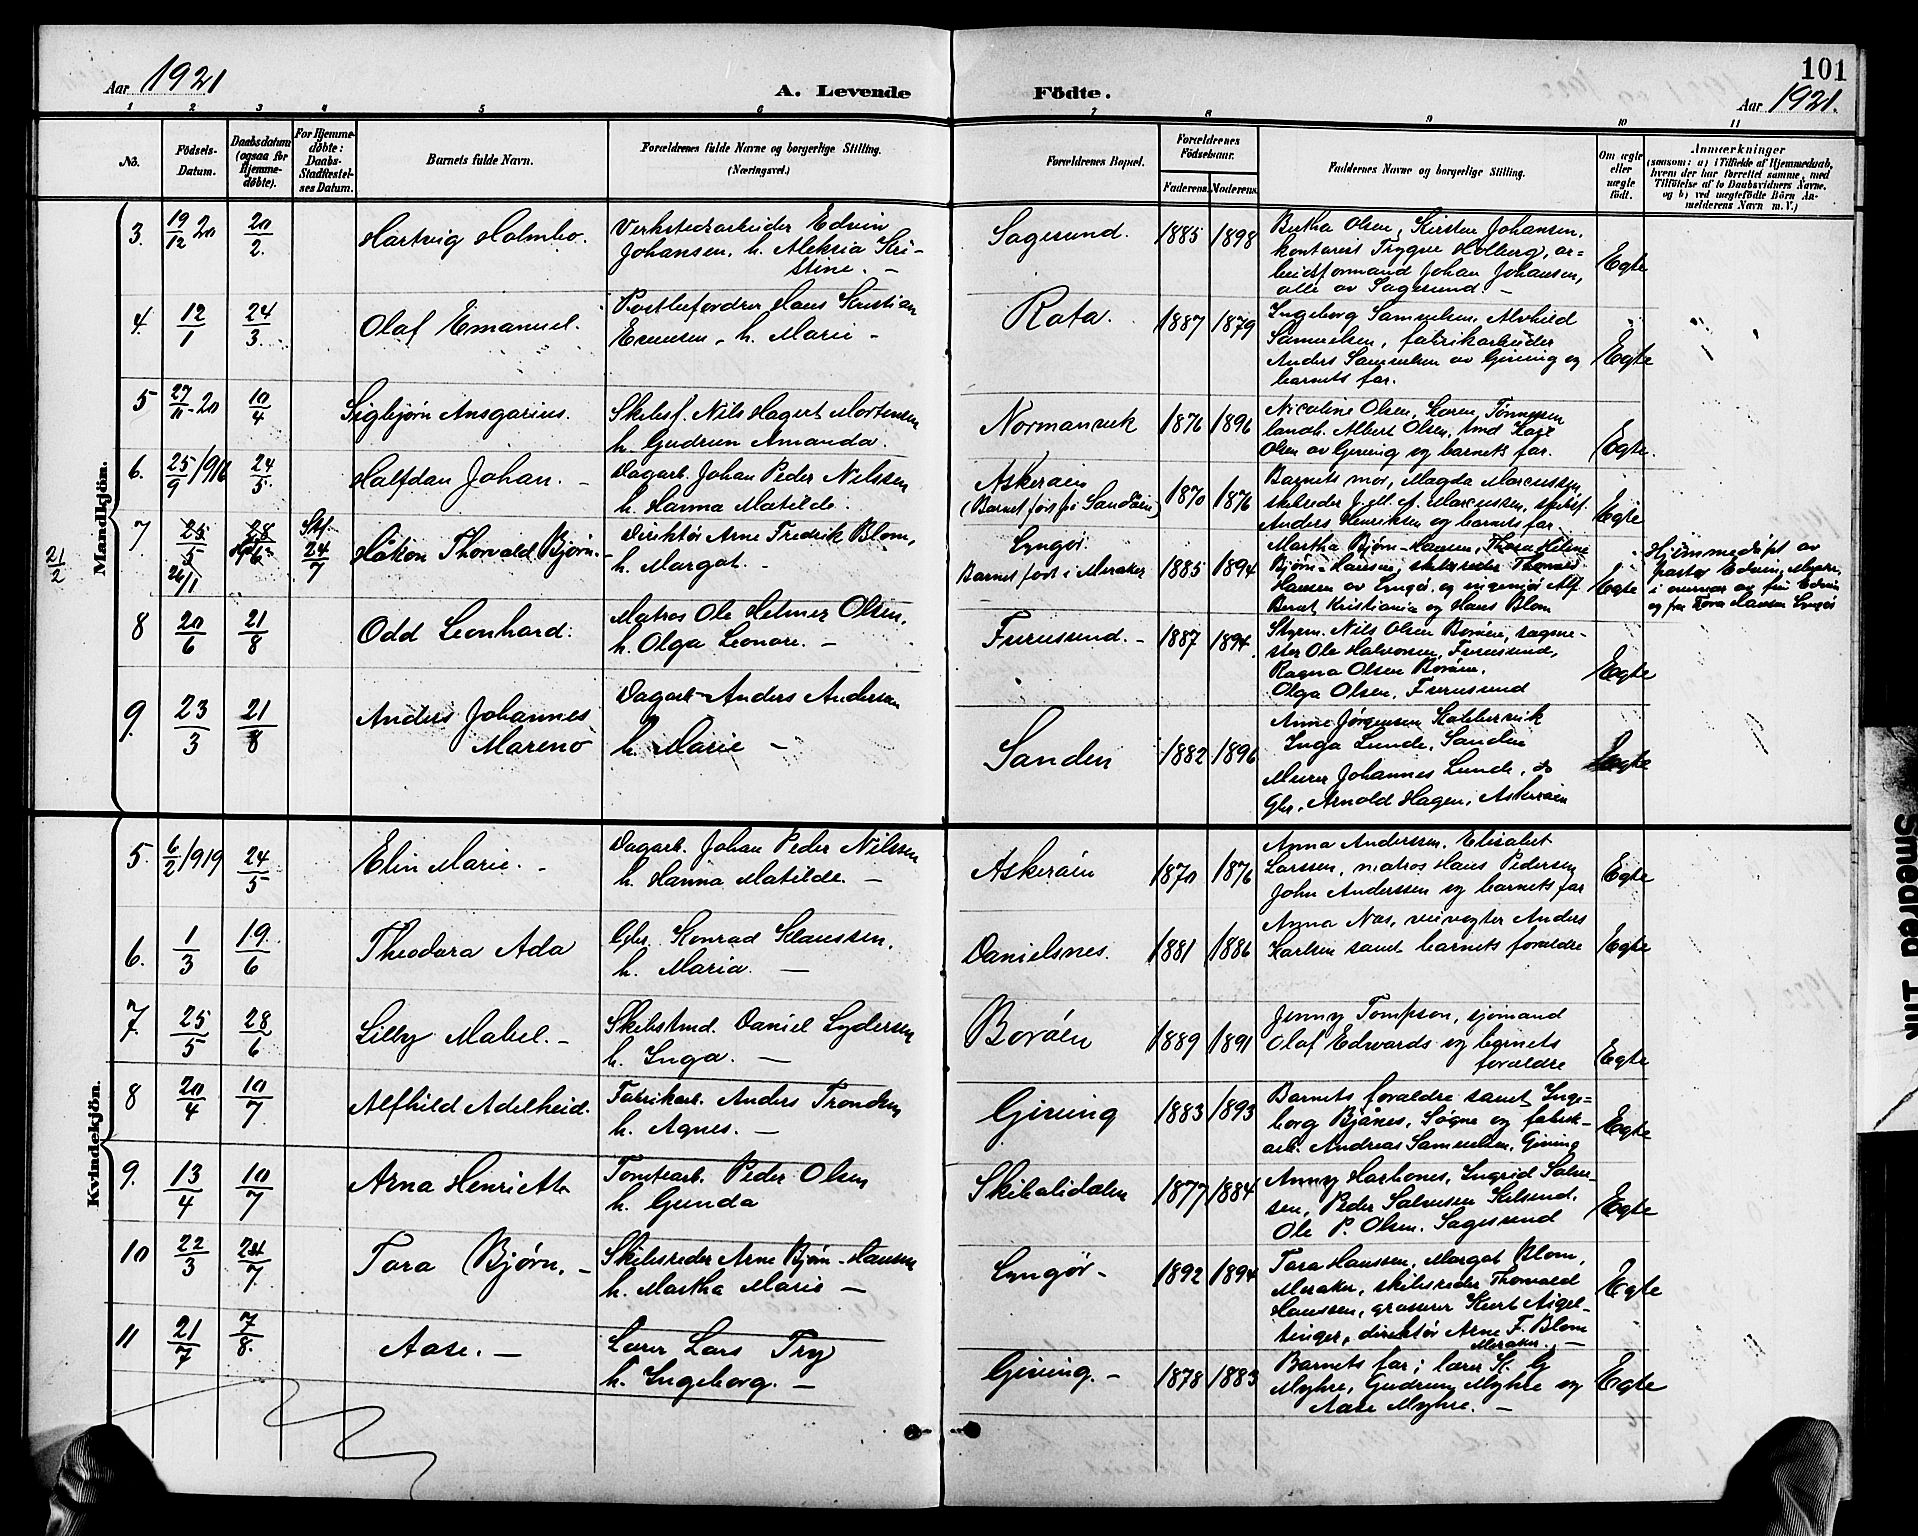 Aar 1921
A. Levende
Fødte.
101
Aar 1921.
1 2 3 4 5 6 7 8 9 10 11
No.
Fødsels-Datum.
Daabsdatum (ogsaa for Hjemmedøbte).
For Hjemmedøbte: Daabs-Stadfestelses Datum.
Barnets fulde Navn.
Forældrenes fulde Navne og borgerlige Stilling.
(Næringsvei.)
Forældrenes Bopæl.
Forældrenes Fødselsaar.
Faderens. Moderens.
Faddernes Navne og borgerlige Stilling.
Om ægte eller uægte født.
Anmærkninger
(saasom: a) i Tilfælde af Hjemmedaab, hvem der har forrettet samme, med Tilføielse af to Daabsvidners Navne, og b) ved uægtefødte Börn Anmelderens Navn m. V.)
Mandkjön.
3. 19/12 20 20/2. Hartvig Holmbo. Verkstedsarbeider Edvin
Johansen, h. Aleksia Kri-
stine. -
Sagesund. 1885 1898 Bertha Olsen, Kirsten Johansen,
kontorist Trygve Holberg, ar-
beidsformand Johan Johansen,
alle av Sagesund. -
Egte
4 12/1 24/3. Olaf Emanuel. Postbefordrer Hans Kristian
h. Marie -
Rota. 1887 1879 Ingeborg Samuelsen, Alvhild
Samuelsen, fabrikarbeider
Anders Samuelsen av Giving og
barnets far.
Egte
5 27/11-20 10/4 Sigbjørn Ansgarius. Skibsf. Nils Hagert Mortensen
h. Gudrun Amanda.
Normansvik 1876 1896 Nicoline Olsen, Karen Tønnessen
landh. Albert Olsen, Aage
Olsen av Giving og barnets far.
Egte.
6. 25/9/916 24/5. Halfdan Johan. - Dagarb. Johan Peder Nilssen
h. Hanna Matilde.
Askerøien
(Barnet født på Sandøien)
1870 1876 Barnets mor, Magda Marcussen,
skibsreder J. M. A. Marcussen, skibsf.
Anders Henriksen og barnets far
Egte
21/2
7 25/5 26/1 28/6 Stf. 24/7 Håkon Thorvald Bjørn. Direktör Arne Fredrik Blom,
h. Margot. -
Lyngör.
Barnet født i Meraker
1885 1894 Martha Bjørn-Hansen, Thora Helene
Bjørn-Hansen, skibsreder Thorvald
Hansen av Lyngör, og ingeniør Alf
Bernt Kristiania og Hans Blom
Egte
Hjemmedøpt av
pastor Edvin
i nærvær av fru Edvin
og fru Tora Hansen Lyngör
8 20/6 21/8 Odd Leonhard. Matros Ole Helmer Olsen,
h. Olga Leonore. -
Furusund. - 1887 1894 Styrm. Nils Olsen Borøen, sagme-
ster Ole Halvorsen, Furusund,
Ragna Olsen Borøen,
Olga Olsen, Furusund
Egte
9. 23/3 21/8 Anders Johannes
Mareno
Dagarb Anders Andersen
h. Marie -
Sanden 1882 1896 Anne Jørgensen Kobbervik
Inga Lunde, Sanden
Murer Johannes Lunde, do
Gbr. Arnold Hagen, Askerøien
Egte
Kvindekjön.
5. 6/2/919 24/5 Elin Marie. - Dagarb. Johan Peder Nilssen
h. Hanna Matilde. -
Askerøien 1870 1876 Anna Anderssen, Elisabet
Larssen, matros Hans Pedersen,
John Anderssen og barnets far
Egte
6. 1/3 19/6 Theodora Ada Gbr. Konrad Klaussen,
h. Maria. -
Danielsnes. 1881 1886 Anna Nas, veivogter Anders
Karlsen samt barnets forældre
Egte
7. 25/5 28/6 Lilly Mabel. - Skibstmd. Daniel Lydersen
h. Inga. -
Borøen 1889 1891 Jenny Tompson, sjömand
Olaf Edwards og barnets
forældre
Egte
8 20/4 10/7 Alfhild Adelheid. Fabrikarb. Anders Trondsen
h. Agnes. -
Giving 1883 1893 Barnets forældre samt Inge-
borg Bjånes, Søgne og fabrik-
arb. Andreas Samuelsen, Giving
Egte
9. 13/4 10/7 Arna Henriette Tomtearb. Peder Olsen
h. Gunda
Skibalidalen 1877 1884 Anny Harbones, Ingrid Salve-
sen, Peder Salvesen Kilsund,
Ole P. Olsen, Sagesund
Egte
10 22/3 24/7 Tora Bjørn. - Skibsreder Arne Bjørn-Hansen
h. Martha Marie -
Lyngør - 1892 1894 Tora Hanssen, Margot Blom,
Meraker, skibsreder Thorvald
Hanssen, grosserer Kurt Aigel-
tinger, direktör Arne F. Blom
Meraker. -
Egte
11 21/7 7/8. Aase. - Lærer Lars Try
h. Ingeborg. -
Giving. - 1878 1883 Barnets far, lærer K. G
Myhre, Gudrun Myhre og
Aase Myhre. -
Egte
Smeared Ink